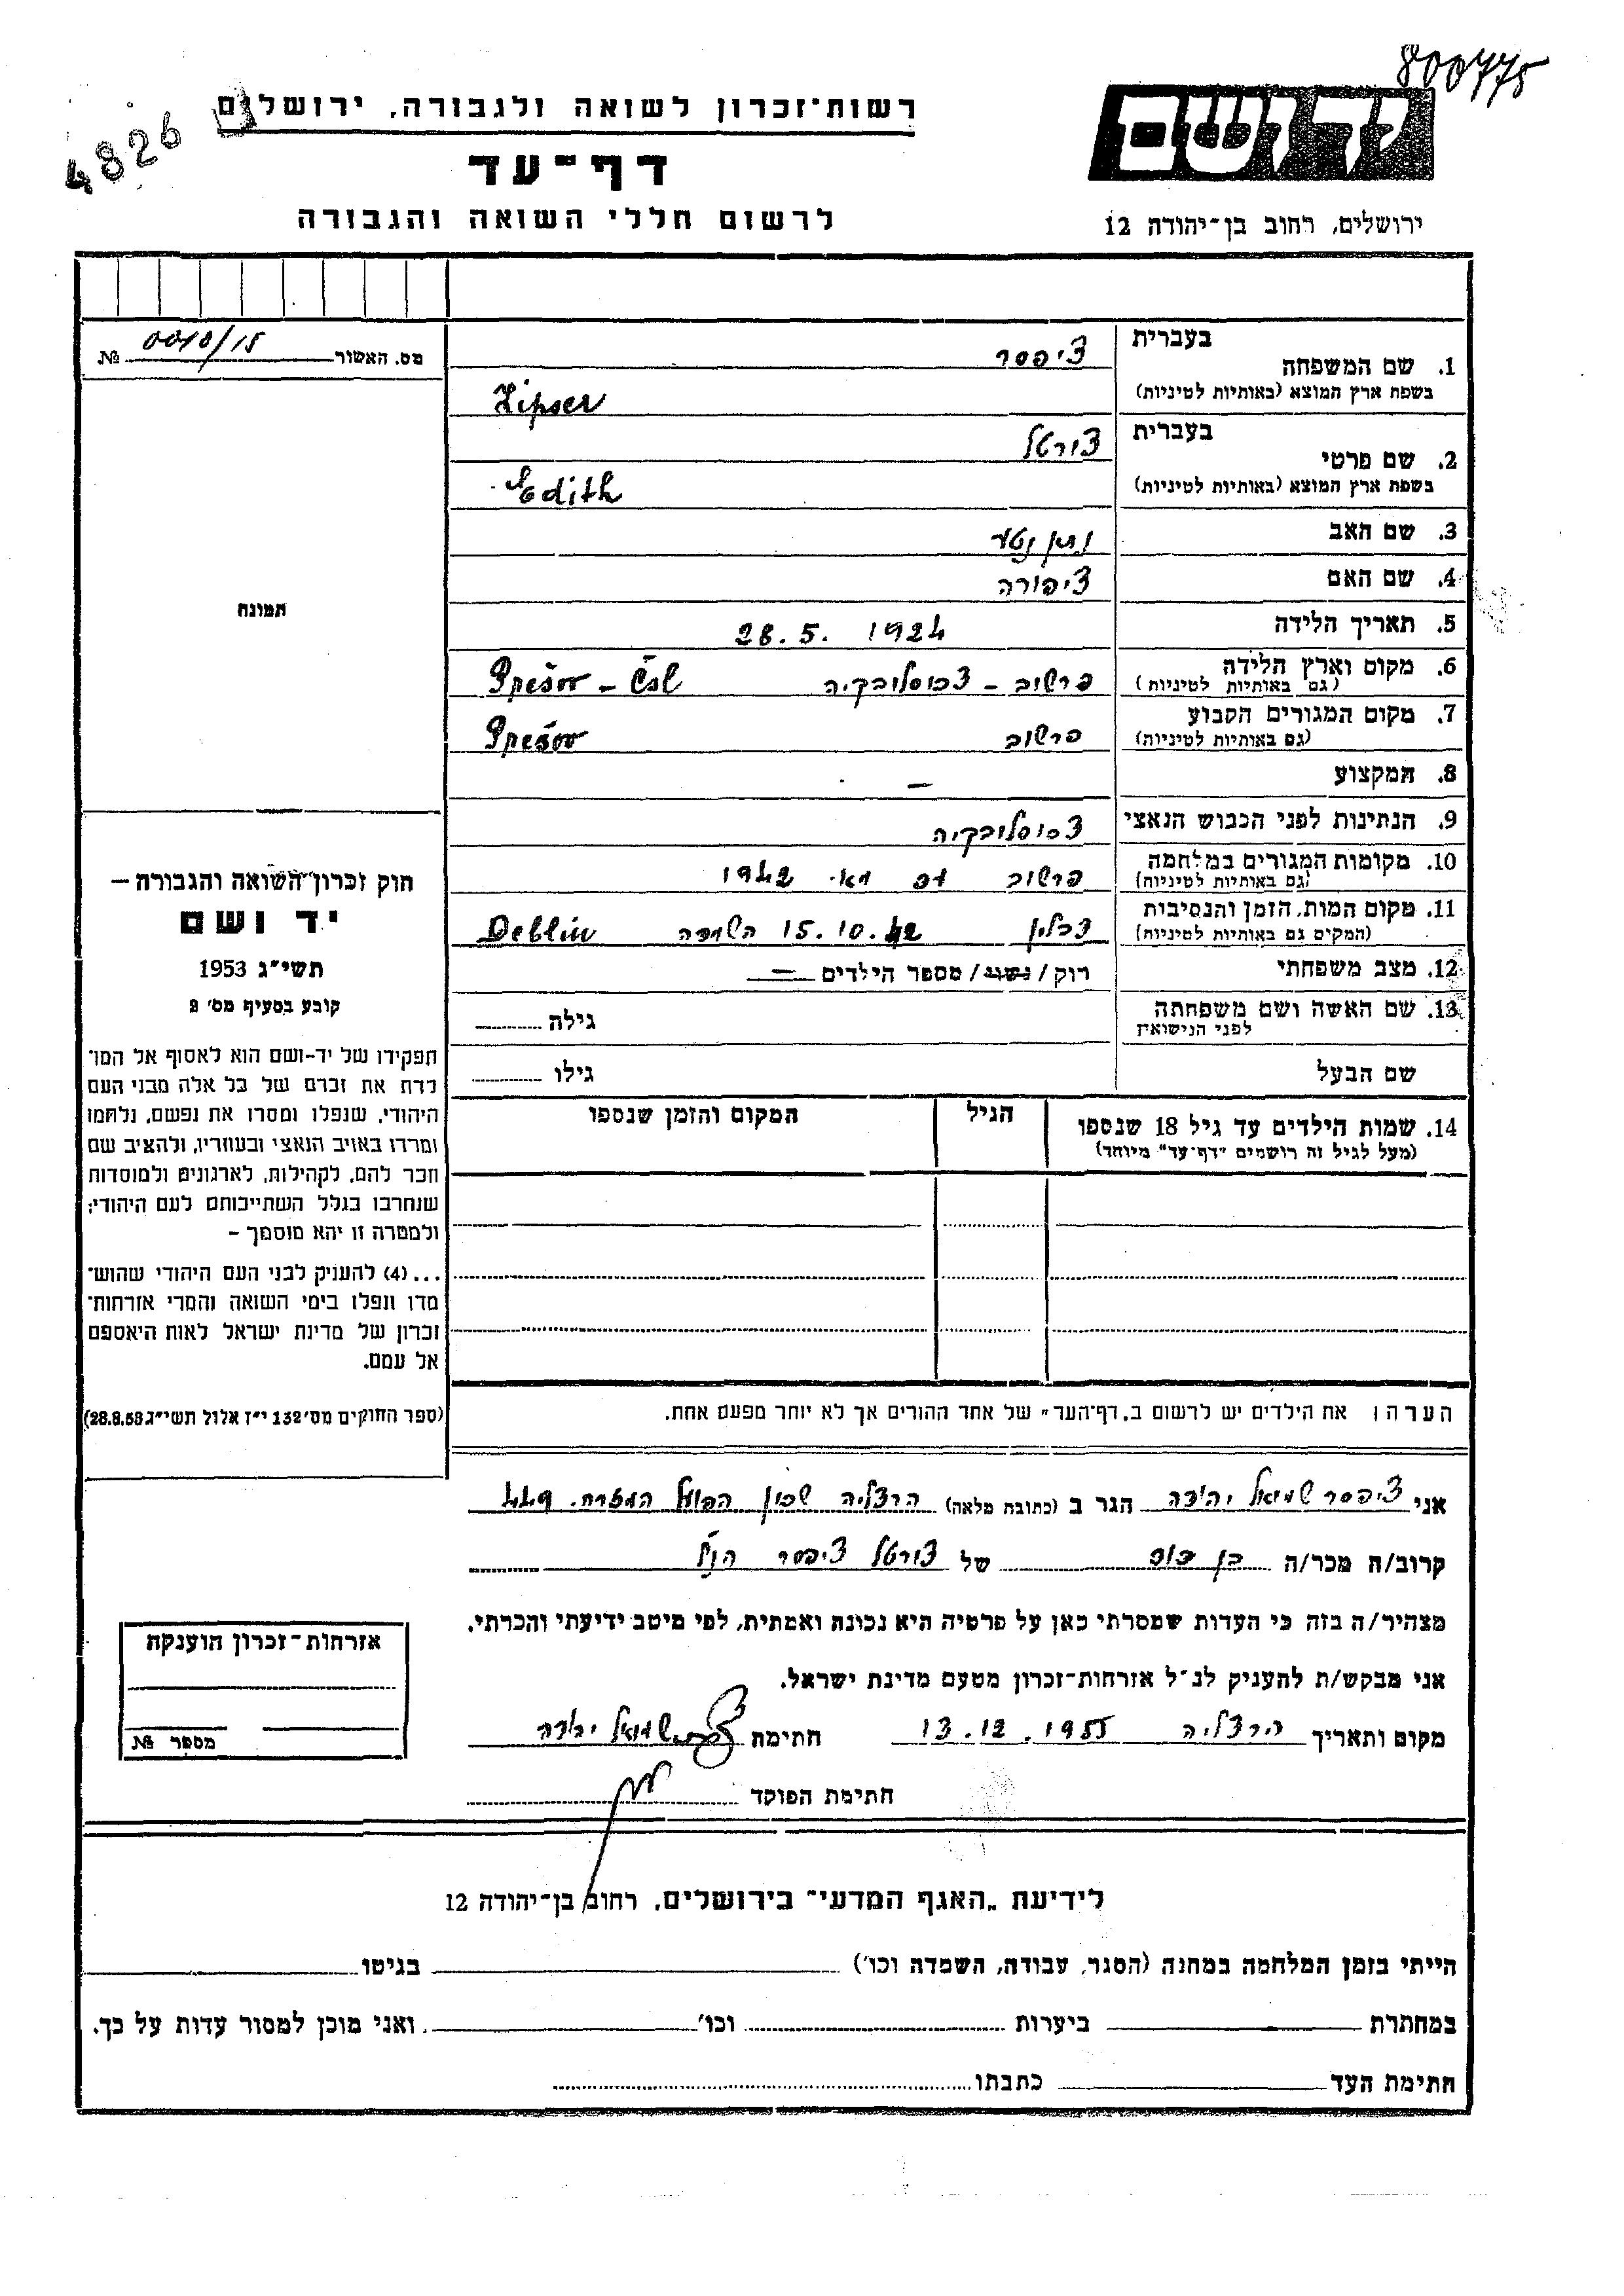 800775
4826
ידושם
ירושלים, רחוב בן־יהודה 12
רשות־זכרון לשואה ולגבורה, ירושלים
דף־עד
לרשום חללי השואה והגבורה
מס. האשור № 0010/15
תמונה
1. שם המשפחה בעברית ציפסר
בשפת ארץ המוצא (באותיות לטיניות) Zipser
2. שם פרטי בעברית צורטל
בשפת ארץ המוצא (באותיות לטיניות) Edith
3. שם האב נתן נטע
4. שם האם ציפורה
5. תאריך הלידה 28.5. 1924
6. מקום וארץ הלידה (גם באותיות לטיניות) פרשוב – צכוסלובקיה Prešov – Čsl
7. מקום המגורים הקבוע (גם באותיות לטיניות) פרשוב Prešov
8. המקצוע –
9. הנתינות לפני הכבוש הנאצי צכוסלובקיה
10. מקומות המגורים במלחמה (גם באותיות לטיניות) פרשוב עד מאי 1942
11. מקום המות, הזמן והנסיבות (המקים גם באותיות לטיניות) דבלין 15.10.42 השמדה Deblin
12. מצב משפחתי רוק/נשוי/ מספר הילדים –
13. שם האשה ושם משפחתה לפני הנישואין גילה
שם הבעל גילו
14. שמות הילדים עד גיל 18 שנספו הגיל המקום והזמן שנספו
(מעל לגיל זה רושמים "דף־עד" מיוחד)
חוק זכרון השואה והגבורה –
יד ושם
תשי״ג 1953
קובע בסעיף מס׳ 2
תפקידו של יד-ושם הוא לאסוף אל המו־
לדת את זכרם של כל אלה מבני העם
היהודי, שנפלו ומסרו את נפשם, נלחמו
ומרדו באויב הנאצי ובעוזריו, ולהציב שם
וזכר להם, לקהילות, לארגונים ולמוסדות
שנחרבו בגלל השתייכותם לעם היהודי;
ולמטרה זו יהא מוסמך –
...(4) להעניק לבני העם היהודי שהוש־
מדו ונפלו בימי השואה והמרי אזרחות־
זכרון של מדינת ישראל לאות היאספם
אל עמם.
(ספר החוקים מס׳ 132 י״ז אלול תשי״ג 28.8.53)
הערה: את הילדים יש לרשום ב„דף־העד״ של אחד ההורים אך לא יותר מפעם אחת.
אני ציפסר שמואל יהודה הגר ב (כתובת מלאה) הרצליה שכון הפועל המזרחי 449
קרוב/ה מכר/ה בן דוד של צורטל ציפסר הי״ד
מצהיר/ה בזה כי העדות שמסרתי כאן על פרטיה היא נכונה ואמתית, לפי מיטב ידיעתי והכרתי.
אני מבקש/ת להעניק לנ״ל אזרחות־זכרון מטעם מדינת ישראל.
מקום ותאריך הרצליה 13.12.1955 חתימת שמואל יהודה
חתימת הפוקד
אזרחות־זכרון הוענקה
מספר №
לידיעת „האגף המדעי״ בירושלים, רחוב בן־יהודה 12
הייתי בזמן המלחמה במחנה (הסגר, עבודה, השמדה וכו׳) בגיטו
במחתרת ביערות וכו׳ ואני מוכן למסור עדות על כך.
חתימת העד כתבתו